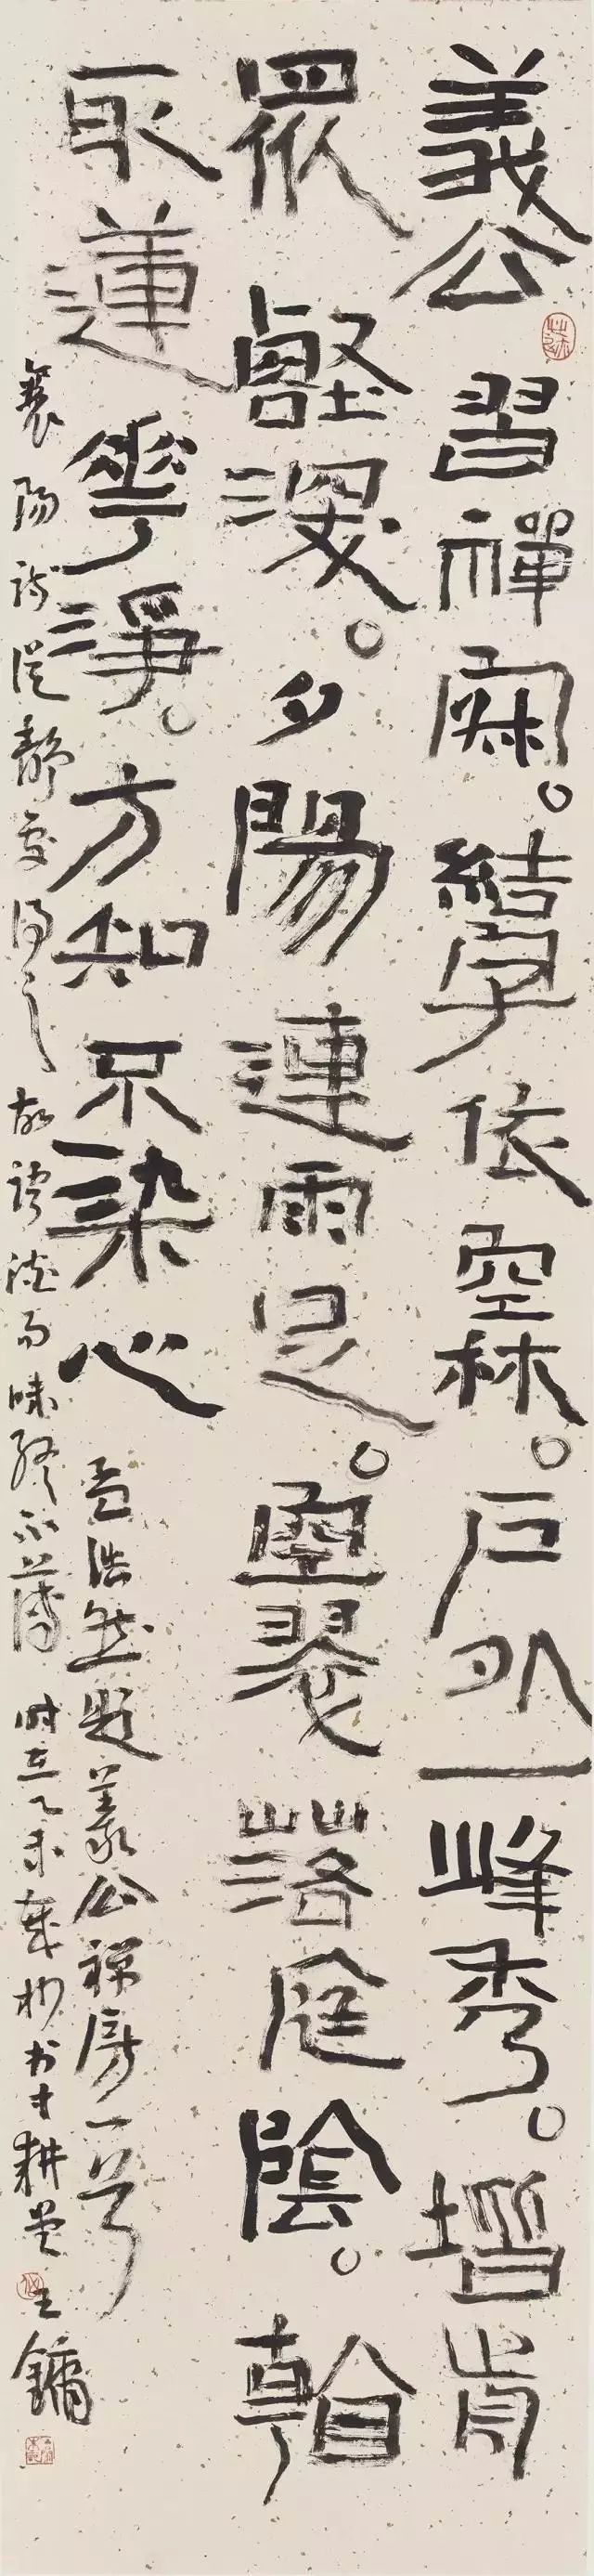 義公習禪寂。結宇依空林。戶外一峰秀。堦前
眾壑深。夕陽連雨足。空翠落庭陰。看
取蓮華淨。方知不染心 孟浩然題義公禪房一首
襄陽詩從靜處得之故語淡而味終不薄 時在乙未歲杪於寸耕堂王鏞